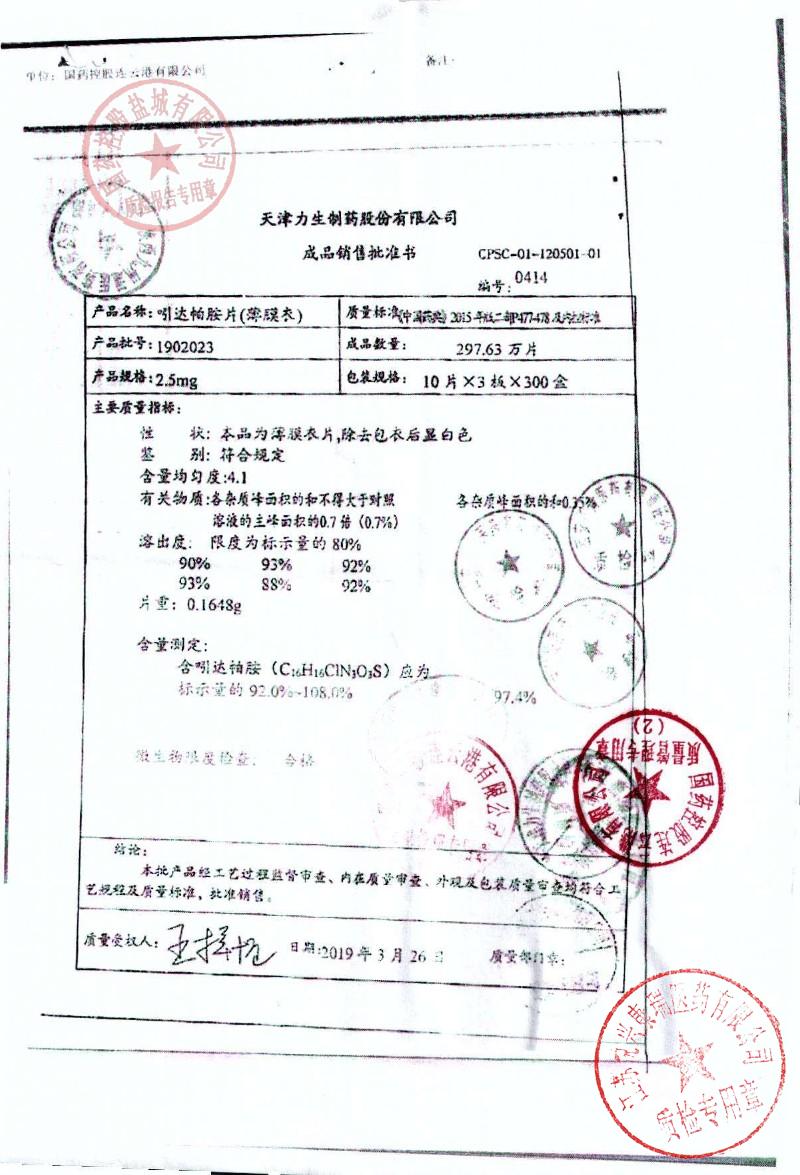 单位: 国药控股连云港有限公司
备注:
国药控股盐城有限公司
质检报告专用章
天津力生制药股份有限公司
成品销售批准书
CPSC-01-120501-01
编号: 0414
产品名称: 吲达帕胺片(薄膜衣)
质量标准:《中国药典》2015年版二部P477-478及内控标准
产品批号: 1902023
成品数量: 297.63 万片
产品规格: 2.5mg
包装规格: 10 片×3 板×300 盒
主要质量指标:
性 状: 本品为薄膜衣片,除去包衣后显白色
鉴 别: 符合规定
含量均匀度:4.1
有关物质:各杂质峰面积的和不得大于对照
各杂质峰面积的和0.35%
溶液的主峰面积的0.7 倍 (0.7%)
溶出度: 限度为标示量的 80%
90% 93% 92%
93% 88% 92%
片重: 0.1648g
含量测定:
含吲达帕胺 (C16H16ClN3O3S) 应为
标示量的 92.0%~108.0%
97.4%
微生物限度检查: 合格
质量管理专用章
(2)
结论:
本批产品经工艺过程监督审查、内在质量审查、外观及包装质量审查均符合工
艺规程及质量标准, 批准销售。
质量受权人:
日期:2019 年 3 月 26 日
质量部门章:
瑞医药有限公司
质检专用章